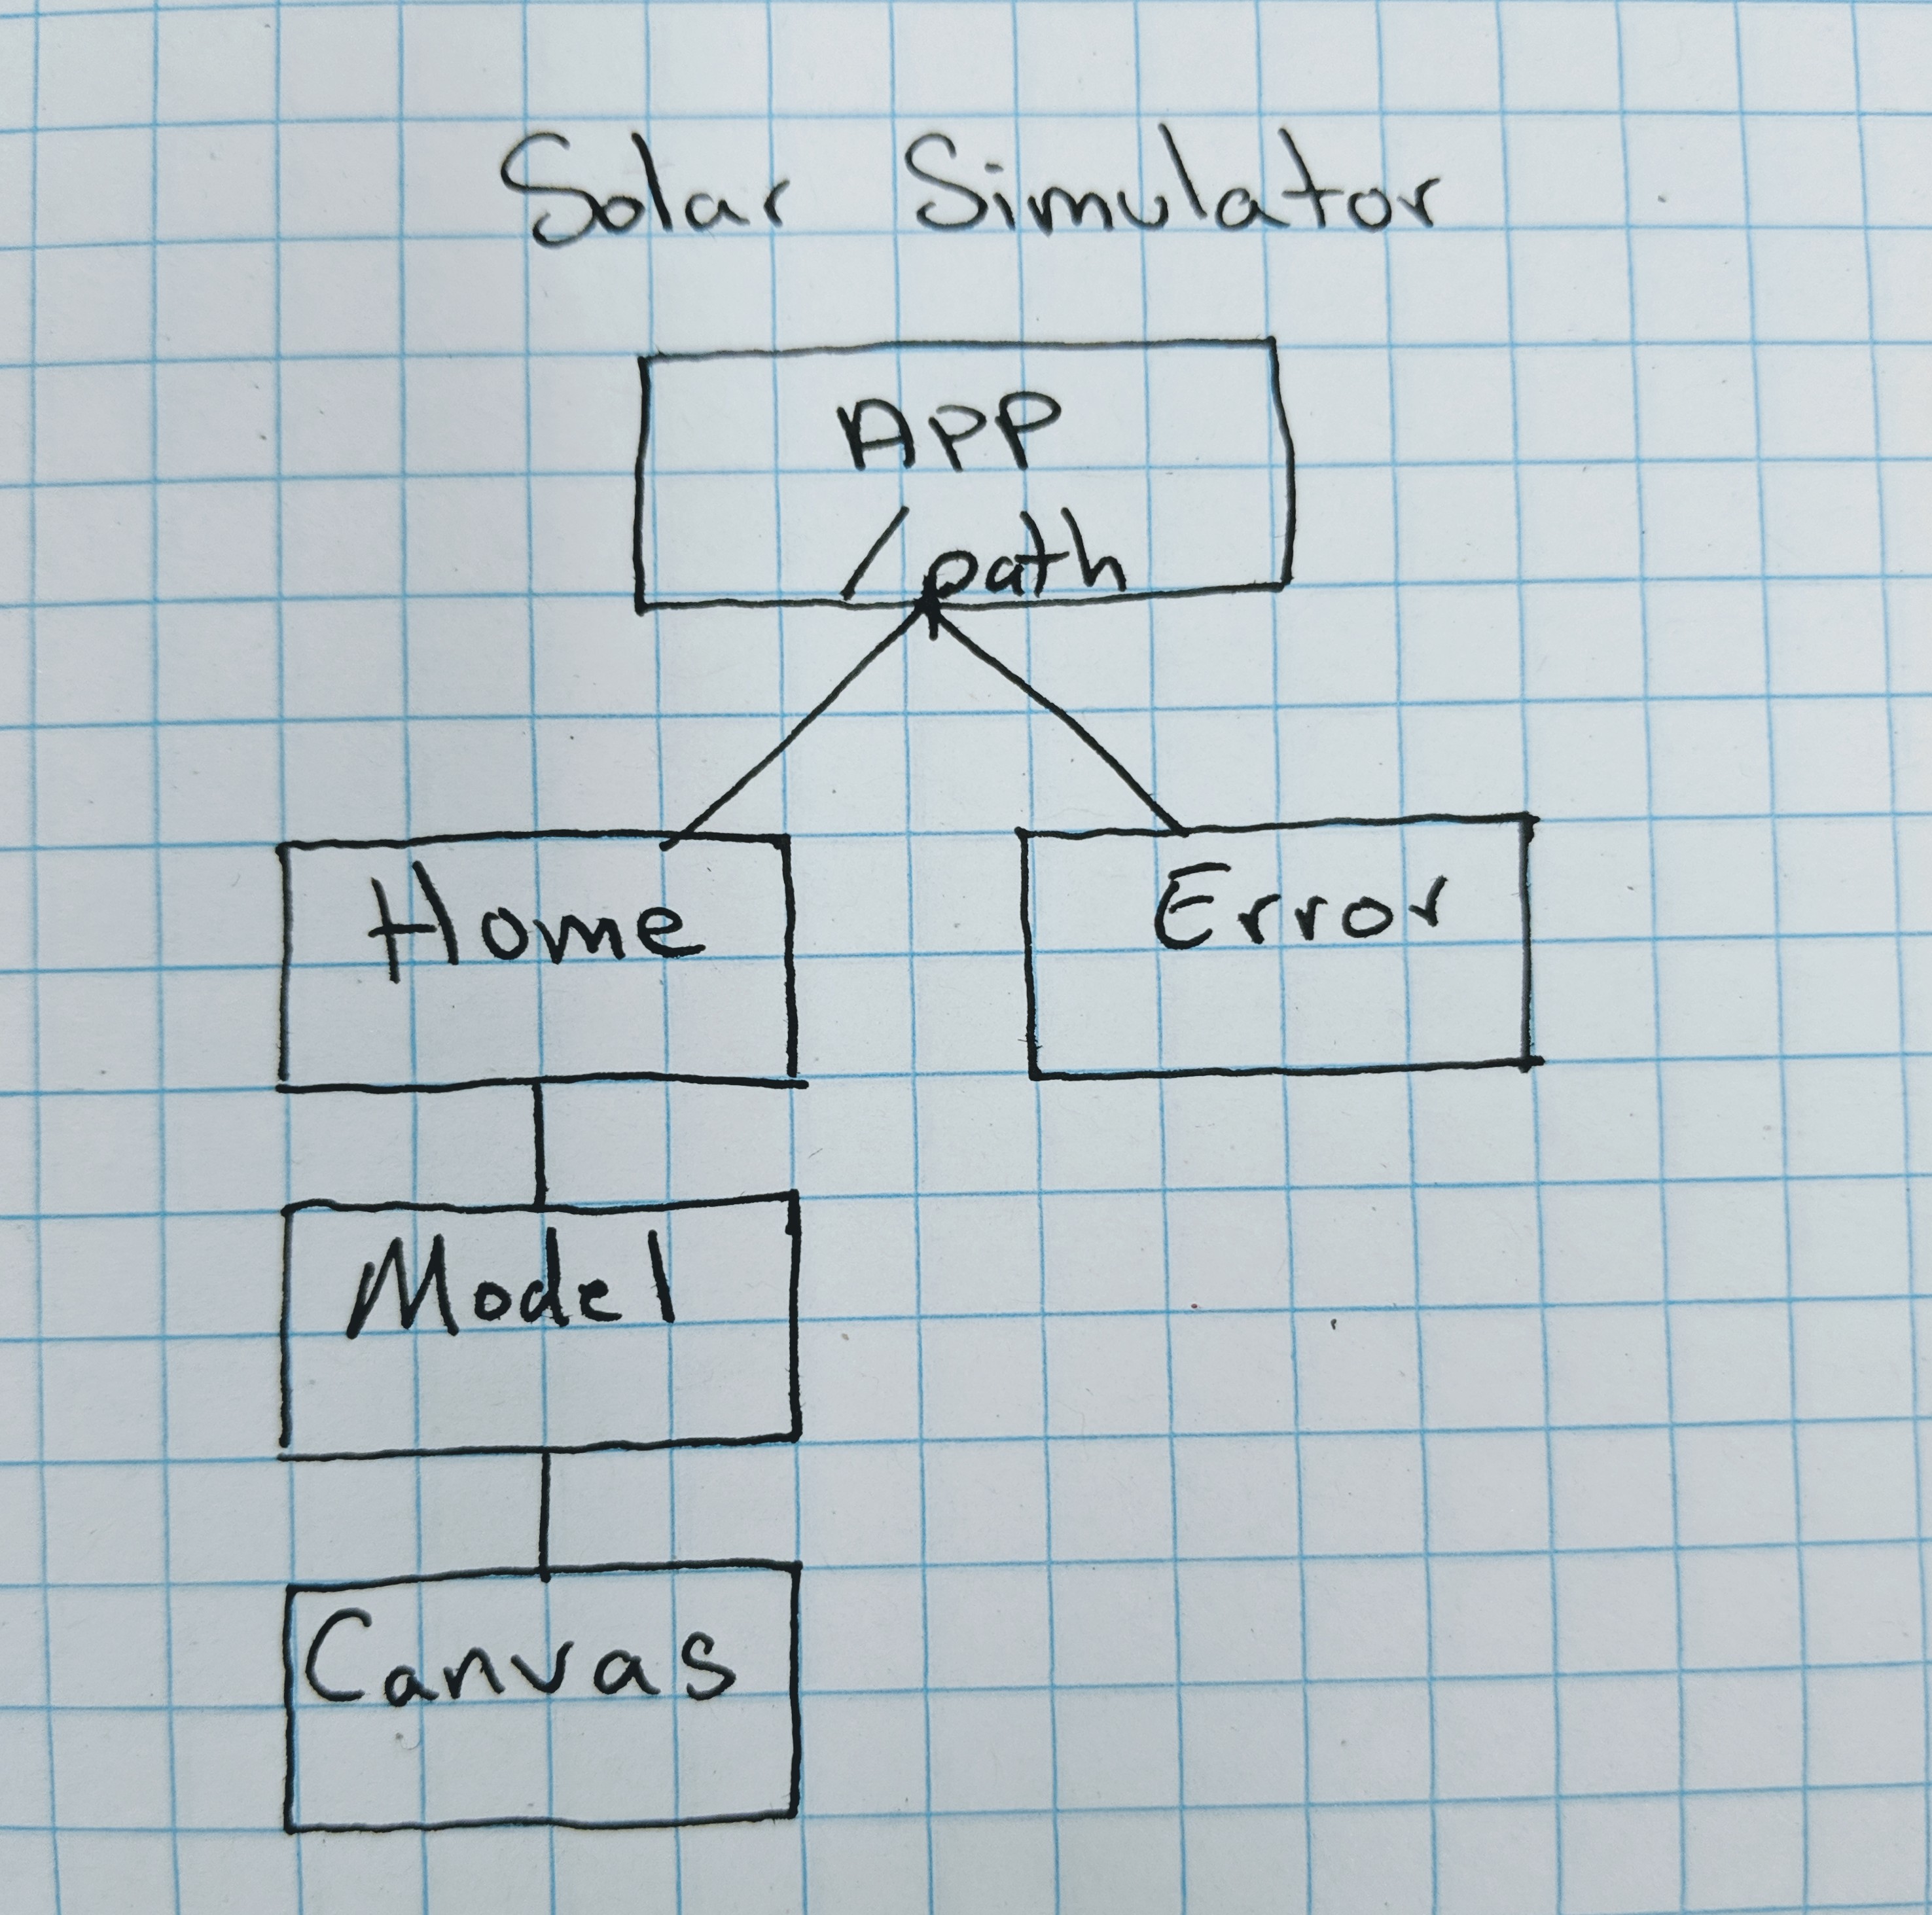 Solar Simulator
APP
/path
Home
Error
Model
Canvas